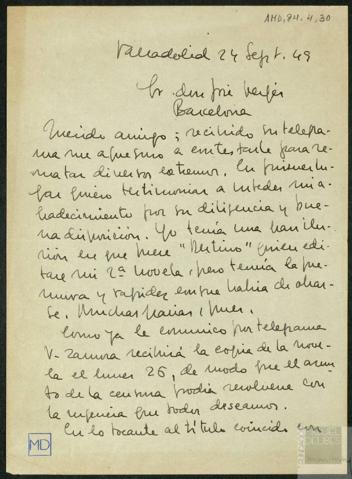 AMD, 94. 4, 30
Valladolid 24 Sept. 49
Sr. don José Vergés
Barcelona
Querido amigo; recibido su telegra-
ma me apresuro a contestarle para re-
matar diversos extremos. En primer lu-
gar quiero testimoniar a ustedes mi a-
gradecimiento por su diligencia y bue-
na disposición. Yo tenía una gran ilu-
sión en que fuese "Destino" quien edi-
tare mi 2ª novela, pero temía la pre-
mura y rapidez con que había de obrar-
se. Muchas gracias, pues.
Como ya le comunico por telegrama
V. Zamora recibirá la copia de la nove-
la el lunes 26, de modo que el asun-
to de la censura podría resolverse con
la urgencia que todos deseamos.
En lo tocante al título coincido con
MD